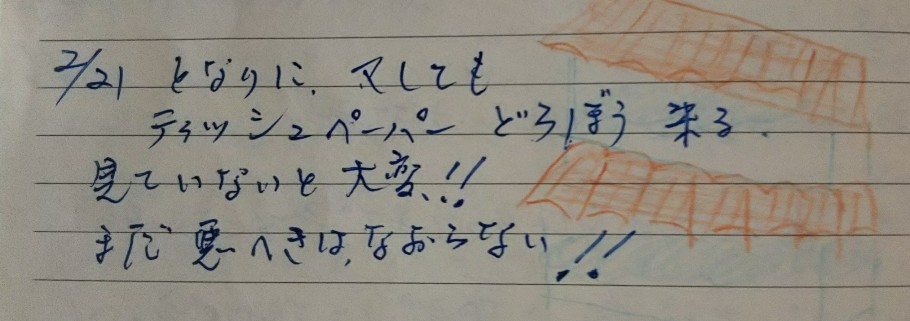 2/21 となりに、又しても
ティッシュペーパー どろぼう 来る.
見ていないと大変!!
まだ悪へきは、なおらない!!